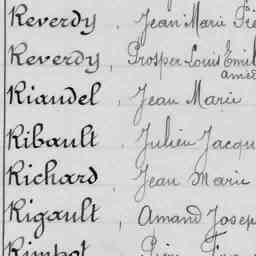 Reverdy, Jean Marie Pie
Reverdy, Prosper Louis Emil
amé
Riandel, Jean Marie
Ribault, Julien Jacqu
Richard, Jean Marie
Rigault, Amand Josep
Rimbot